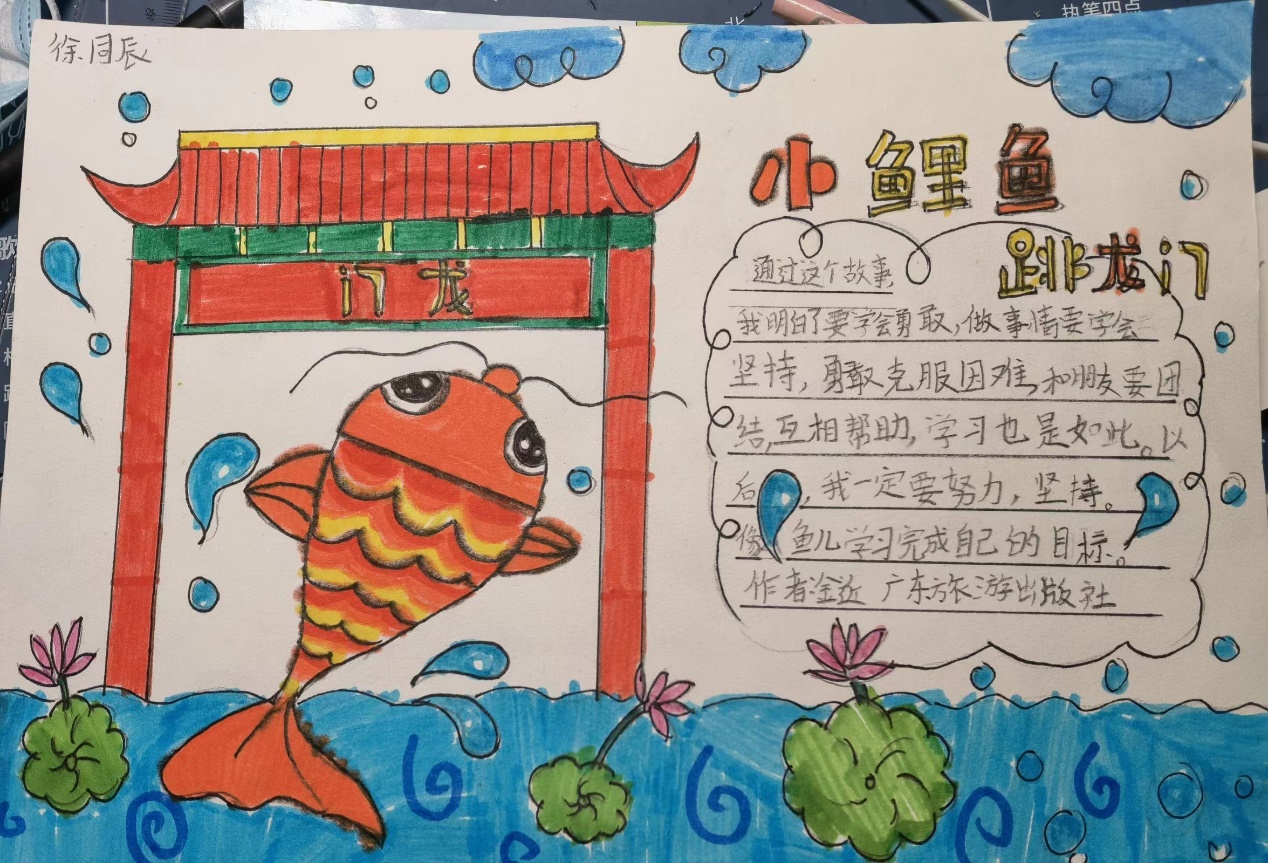 徐同辰
执笔四点
小鲤鱼
跳龙门
门龙
通过这个故事
我明白了要学会勇敢,做事情要学会
坚持,勇敢克服困难,和朋友要团
结,互相帮助,学习也是如此。以
后,我一定要努力,坚持。
像鱼儿学习完成自己的目标。
作者:金近 广东旅游出版社